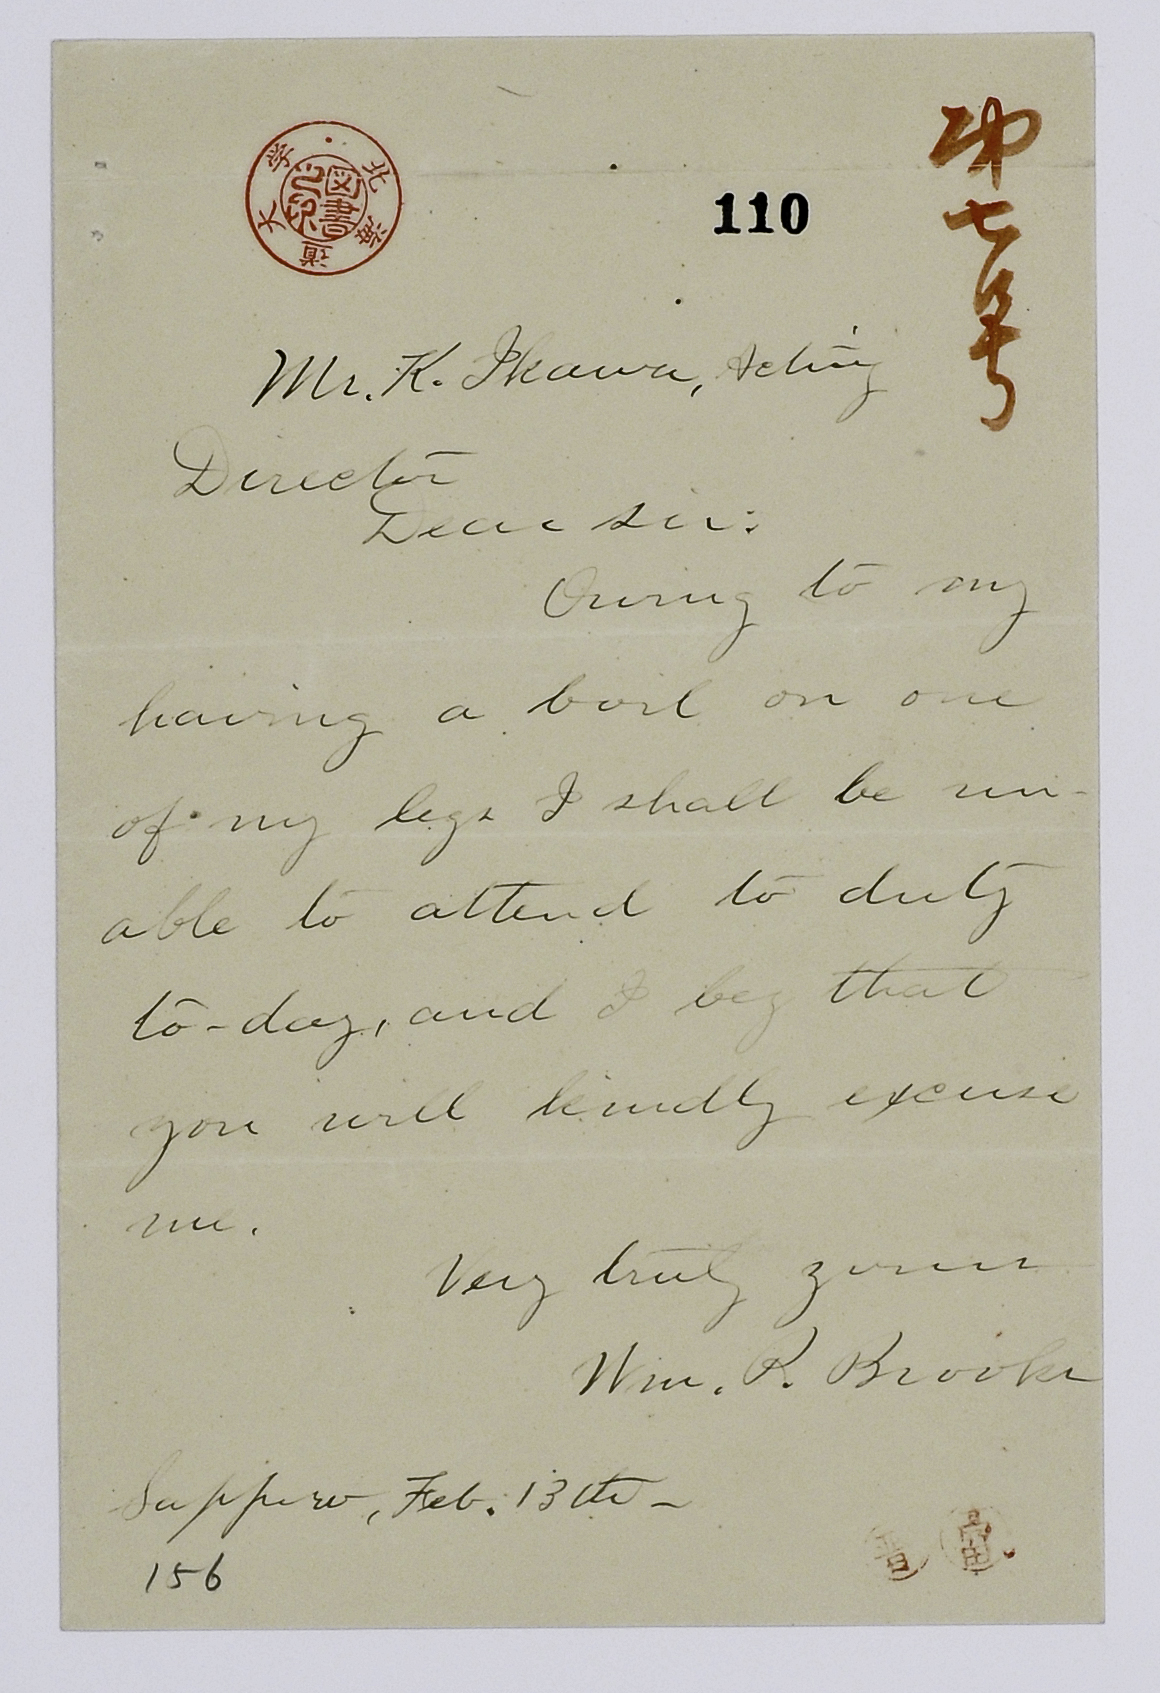 北海道大学
図書之印
110
七年
Mr. K. Ikawa, Acting
Director
Dear Sir:
Owing to my
having a boil on one
of my legs I shall be un-
able to attend to duty
to-day, and I beg that
you will kindly excuse
me.
Very truly yours
Wm. P. Brooks
Sapporo, Feb. 13th -
156